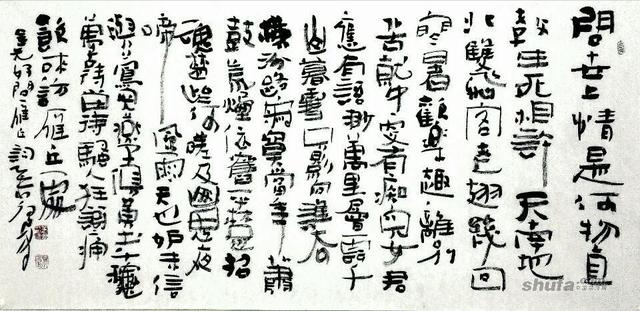 問世上情是何物直
教生死相許天南地
北雙飛客老翅幾回
寒暑歡樂趣離別
苦就中更有痴兒女君
應有語渺萬里層雲千
山暮雪只影向誰去
橫汾路寂寞當年蕭
鼓荒煙依舊平楚招
魂楚些何嗟及山鬼夜
啼風雨天也妒未信
黃土千
萬古留待騷人狂歌痛
飲來訪雁丘處
元好問雁丘詞
shufa.com